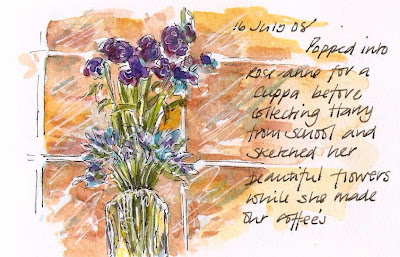 16 July 08
Popped into
Rose-anne for a
Cuppa before
collecting Harry
from school and
sketched her
beautiful flowers
while she made
our coffee's